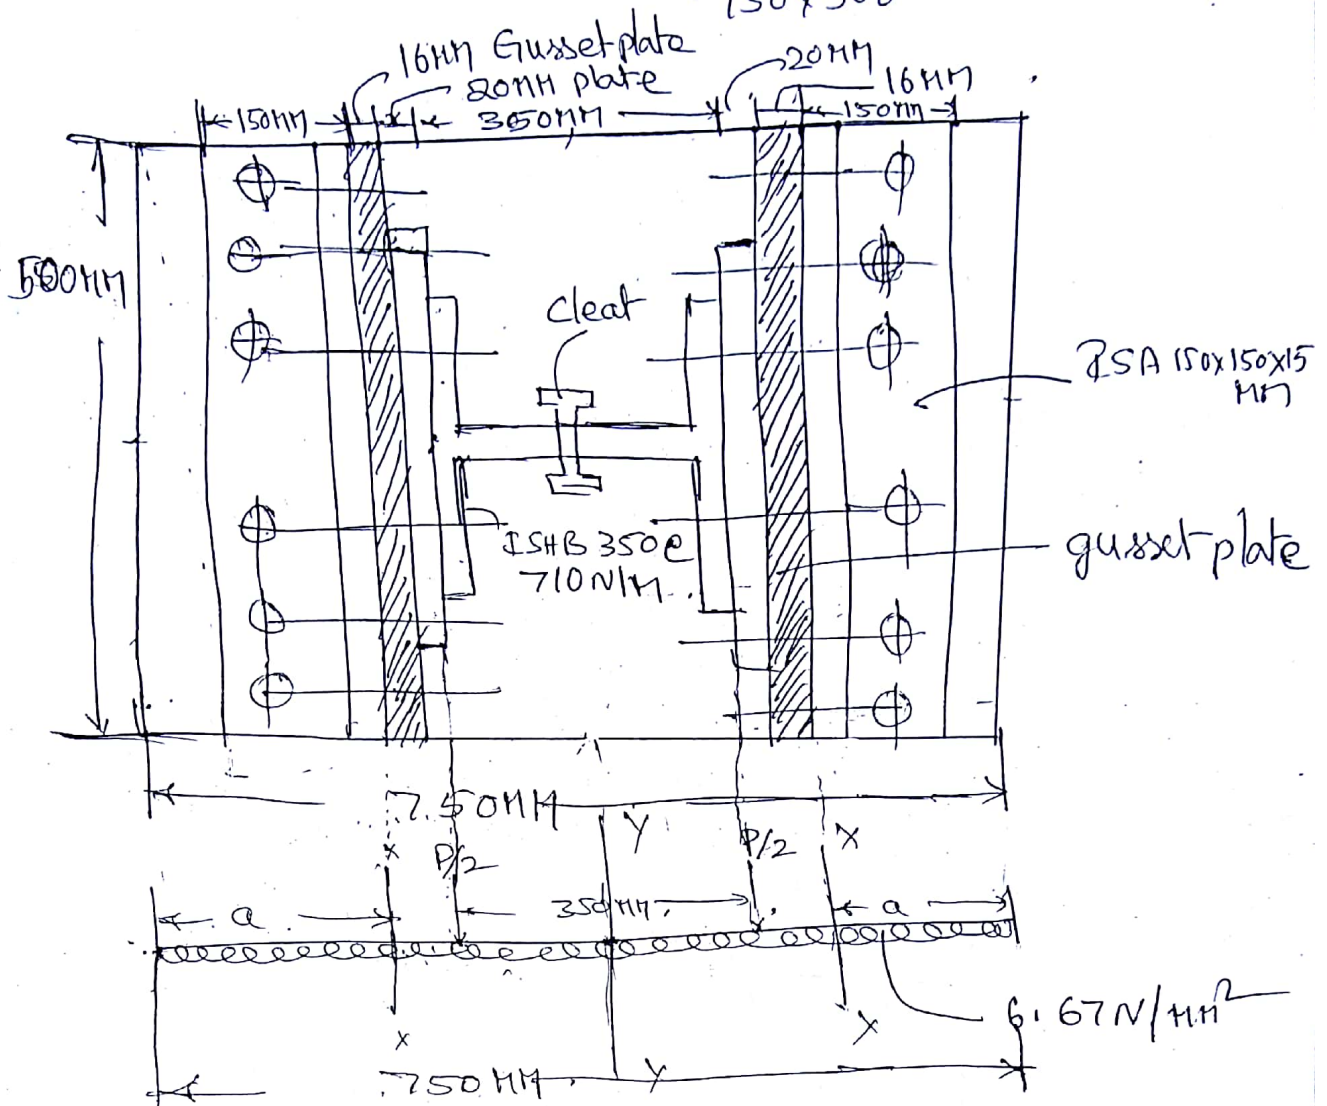 150 x 500
16MM Gusset plate
20MM plate
20MM
16MM
150MM
350MM
150MM
500MM
cleat
ISA 150x150x15
MM
ISHB 350@
710N/M
gusset plate
750MM
Y
x
P/2
P/2
X
a
350MM
a
6.67N/MM2
x
X
750MM
Y